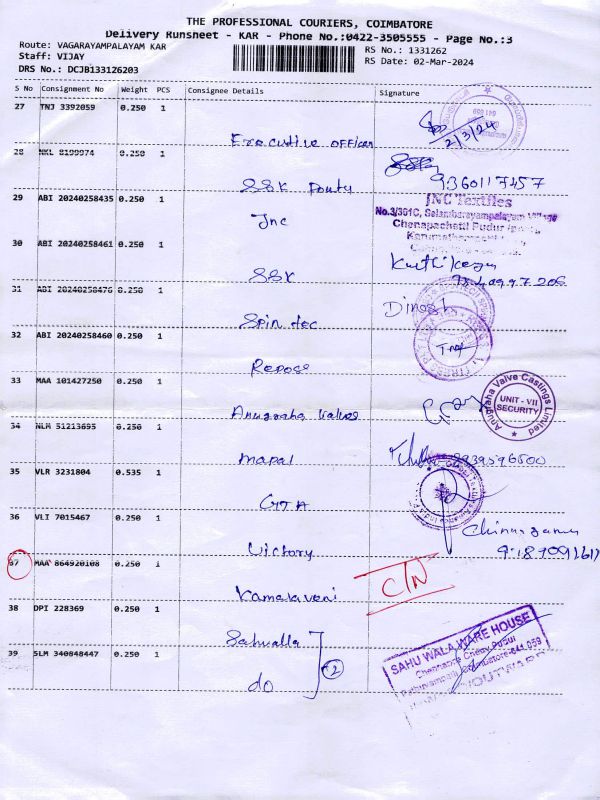 THE PROFESSIONAL COURIERS, COIMBATORE
Delivery Runsheet - KAR - Phone No.:0422-3505555 - Page No.:3
Route: VAGARAYAMPALAYAM KAR
RS No.: 1331262
Staff: VIJAY
RS Date: 02-Mar-2024
DRS No.: DCJB133126203
S No Consignment No Weight PCS Consignee Details Signature
27 TNJ 3392059 0.250 1
Executive officer 2/3/24
28 NKL 8199974 0.250 1
SSK 9360117457
29 ABI 20240258435 0.250 1
Jnc
JNC Textiles
No.3/391C, Selambarayampalayam Village
Chenapachetti Pudur
30 ABI 20240258461 0.250 1
SSK
31 ABI 20240258476 0.250 1
Spin tec Dinesh
32 ABI 20240258460 0.250 1
Repose
33 MAA 101427250 0.250 1
Anugraha Valves
Anugraha Valve Castings Limited
UNIT - VII
SECURITY
34 NLM 51213695 0.250 1
Mapal
35 VLR 3231804 0.535 1
GTA
36 VLI 7015467 0.250 1
Victory
37 MAA 864920108 0.250 1
Kamalaveni C/N
38 DPI 228369 0.250 1
Sahwalla
39 SLM 340848447 0.250 1
do 2
SAHU WALA WARE HOUSE
Chennappa Chetty Pudur
Coimbatore-641 659